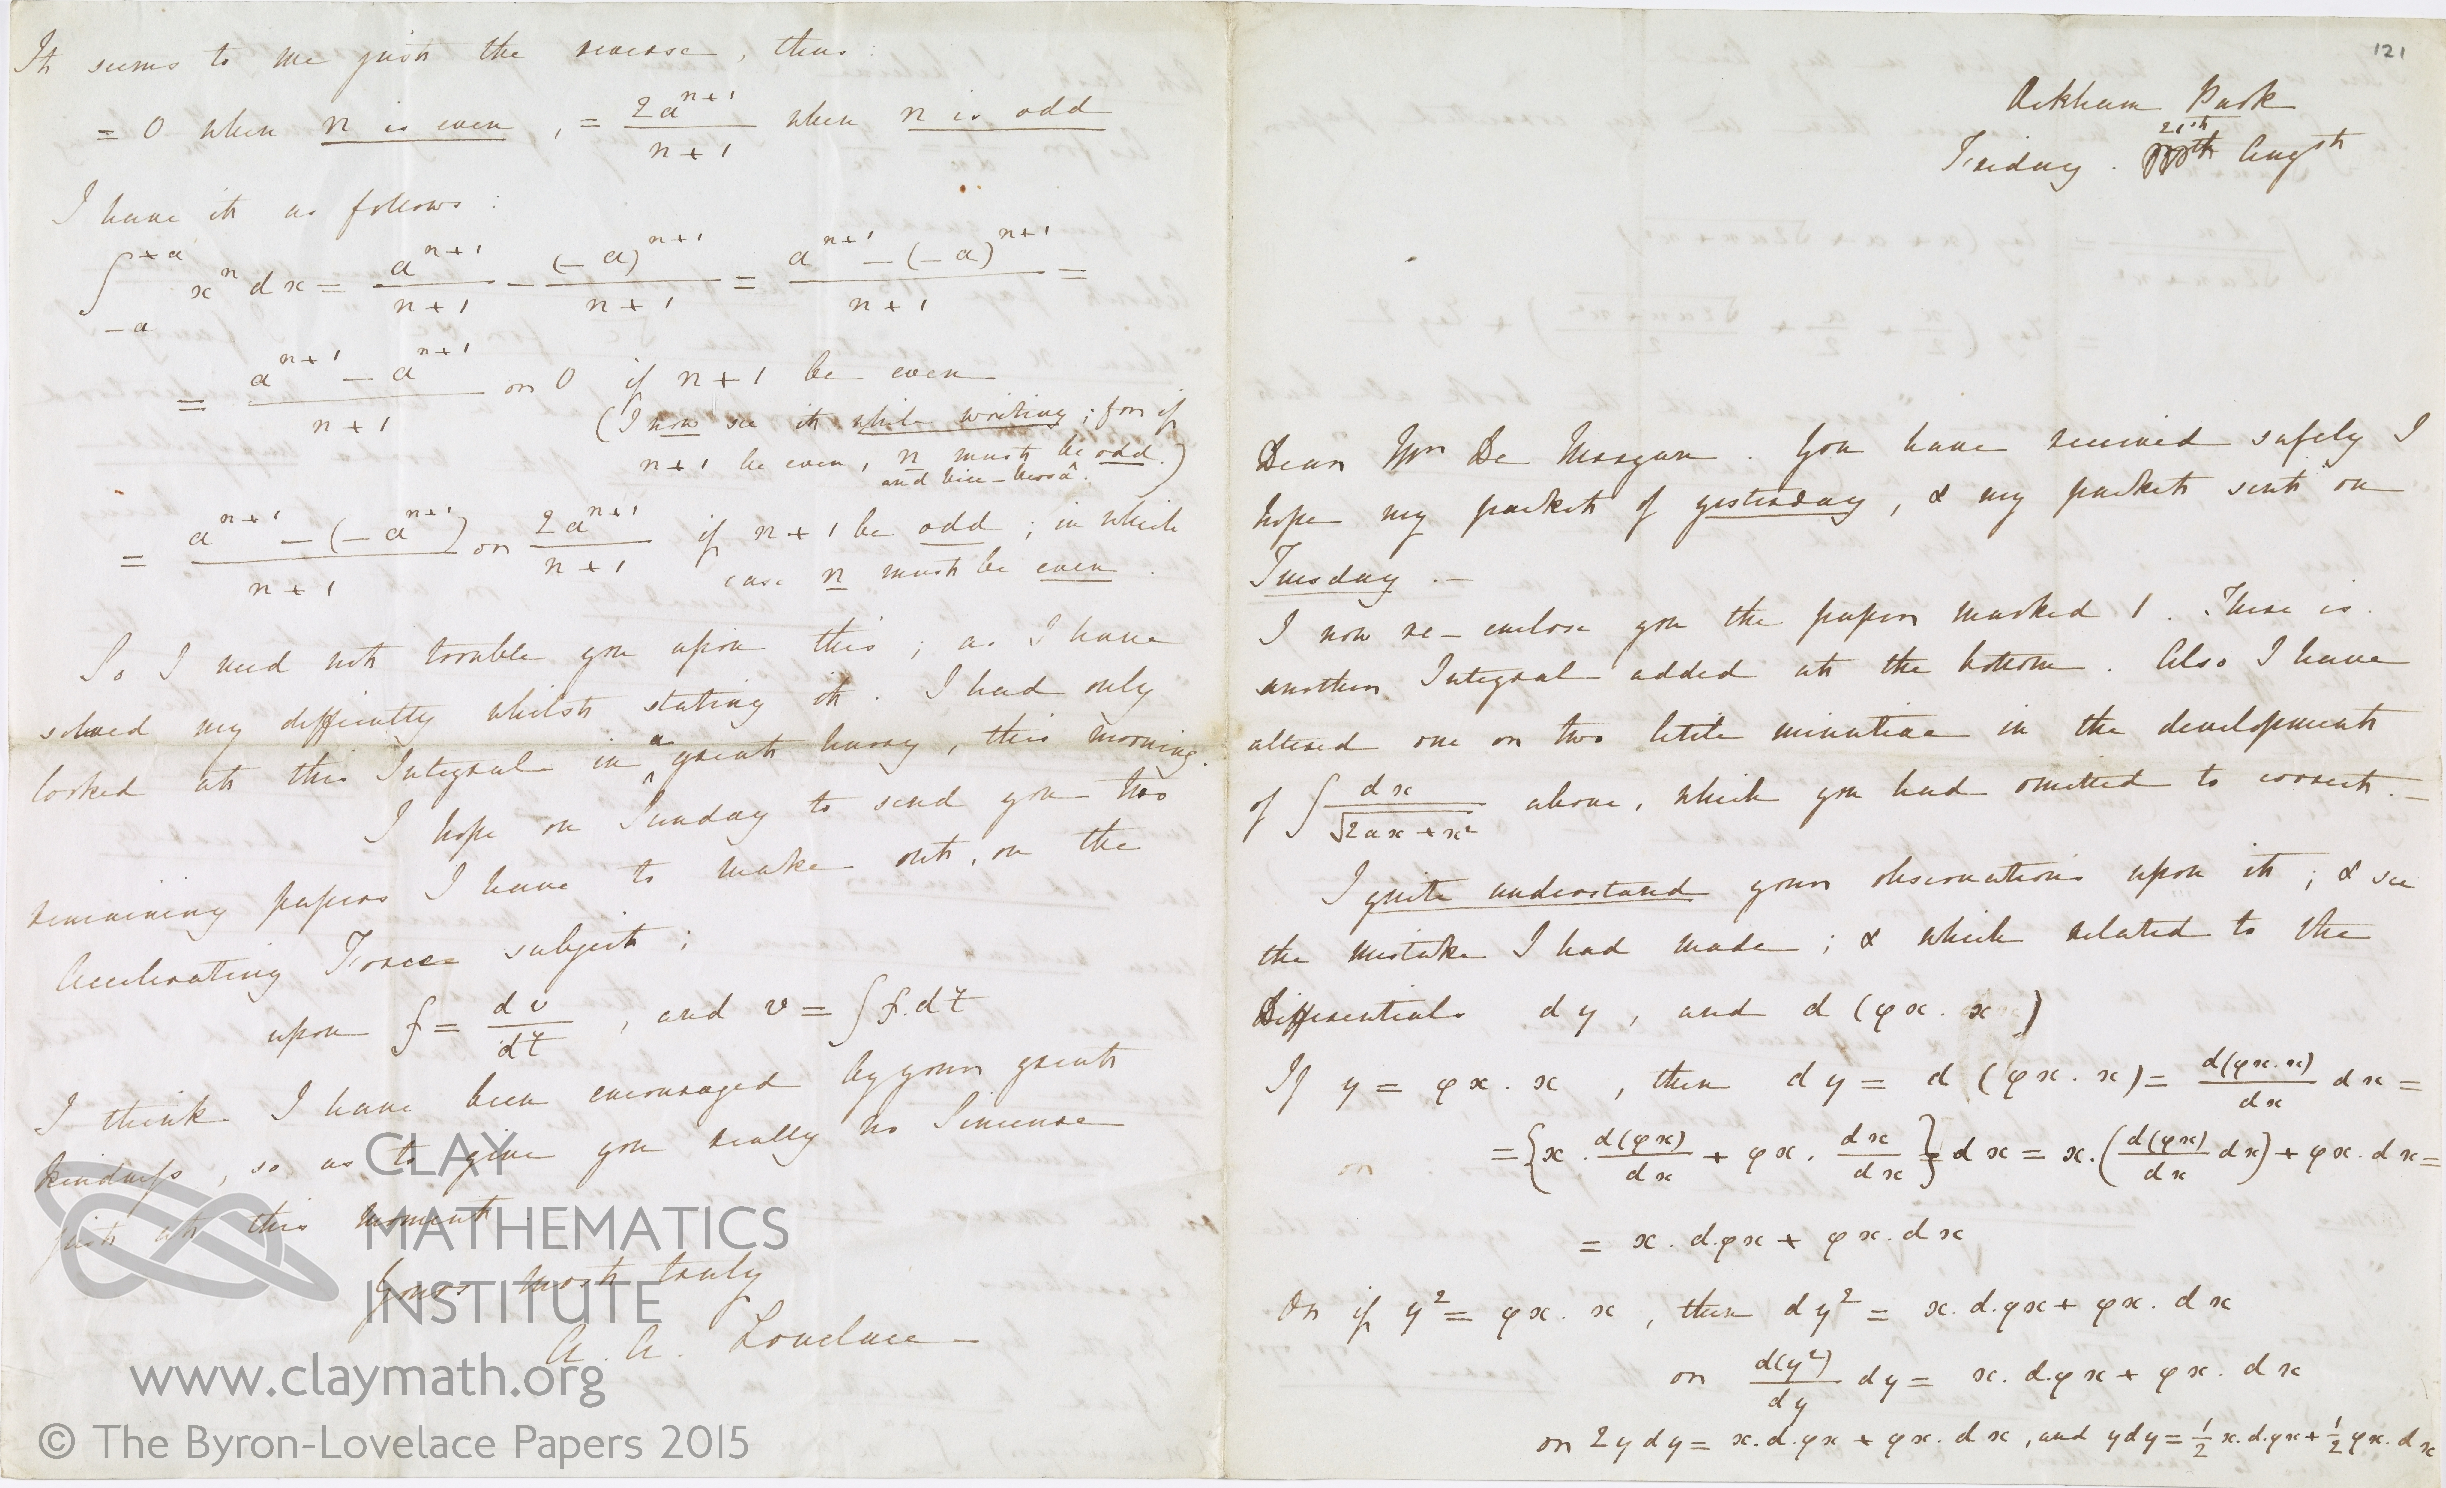 It seems to me just the reverse, thus:
= 0 when n is even, = 2a^{n+1}/(n+1) when n is odd
I have it as follows:
∫_{-a}^{+a} x^n dx = a^{n+1}/(n+1) - (-a)^{n+1}/(n+1) = (a^{n+1} - (-a)^{n+1})/(n+1) =
= (a^{n+1} - a^{n+1})/(n+1) or 0 if n+1 be even
(I now see it while writing; for if
n+1 be even, n must be odd.
and vice-versâ.)
= (a^{n+1} - (-a^{n+1}))/(n+1) or 2a^{n+1}/(n+1) if n+1 be odd; in which
case n must be even.
So I need not trouble you upon this; as I have
solved my difficulty whilst stating it. I had only
looked at this Integral in a great hurry, this morning.
I hope on Sunday to send you two
remaining papers I have to make out, on the
Accelerating Force subject;
upon f = dv/dt, and v = ∫f.dt
I think I have been encouraged by your great
kindness, so as to give you really no Sinecure
just at this moment.
Yours most truly
A. A. Lovelace
CLAY
MATHEMATICS
INSTITUTE
www.claymath.org
© The Byron-Lovelace Papers 2015
121
Ockham Park
Friday. 21st Augst
Dear Mr De Morgan. You have received safely I
hope my packet of yesterday, & my packet sent on
Tuesday.—
I now re-enclose you the paper marked 1. There is
another Integral added at the bottom. Also I have
altered one or two little minutiae in the development
of ∫ dx/√(2ax+x²) above, which you had omitted to correct.—
I quite understand your observations upon it; & see
the mistake I had made; & which related to the
Differentials dy, and d(φx.x)
If y = φx.x, then dy = d(φx.x) = d(φx.x)/dx dx =
or = {x.d(φx)/dx + φx.dx/dx} dx = x.(d(φx)/dx dx) + φx.dx =
= x.d.φx + φx.dx
Or if y² = φx.x, then dy² = x.d.φx + φx.dx
or d(y²)/dy dy = x.d.φx + φx.dx
or 2ydy = x.d.φx + φx.dx, and ydy = ½x.d.φx + ½φx.dx